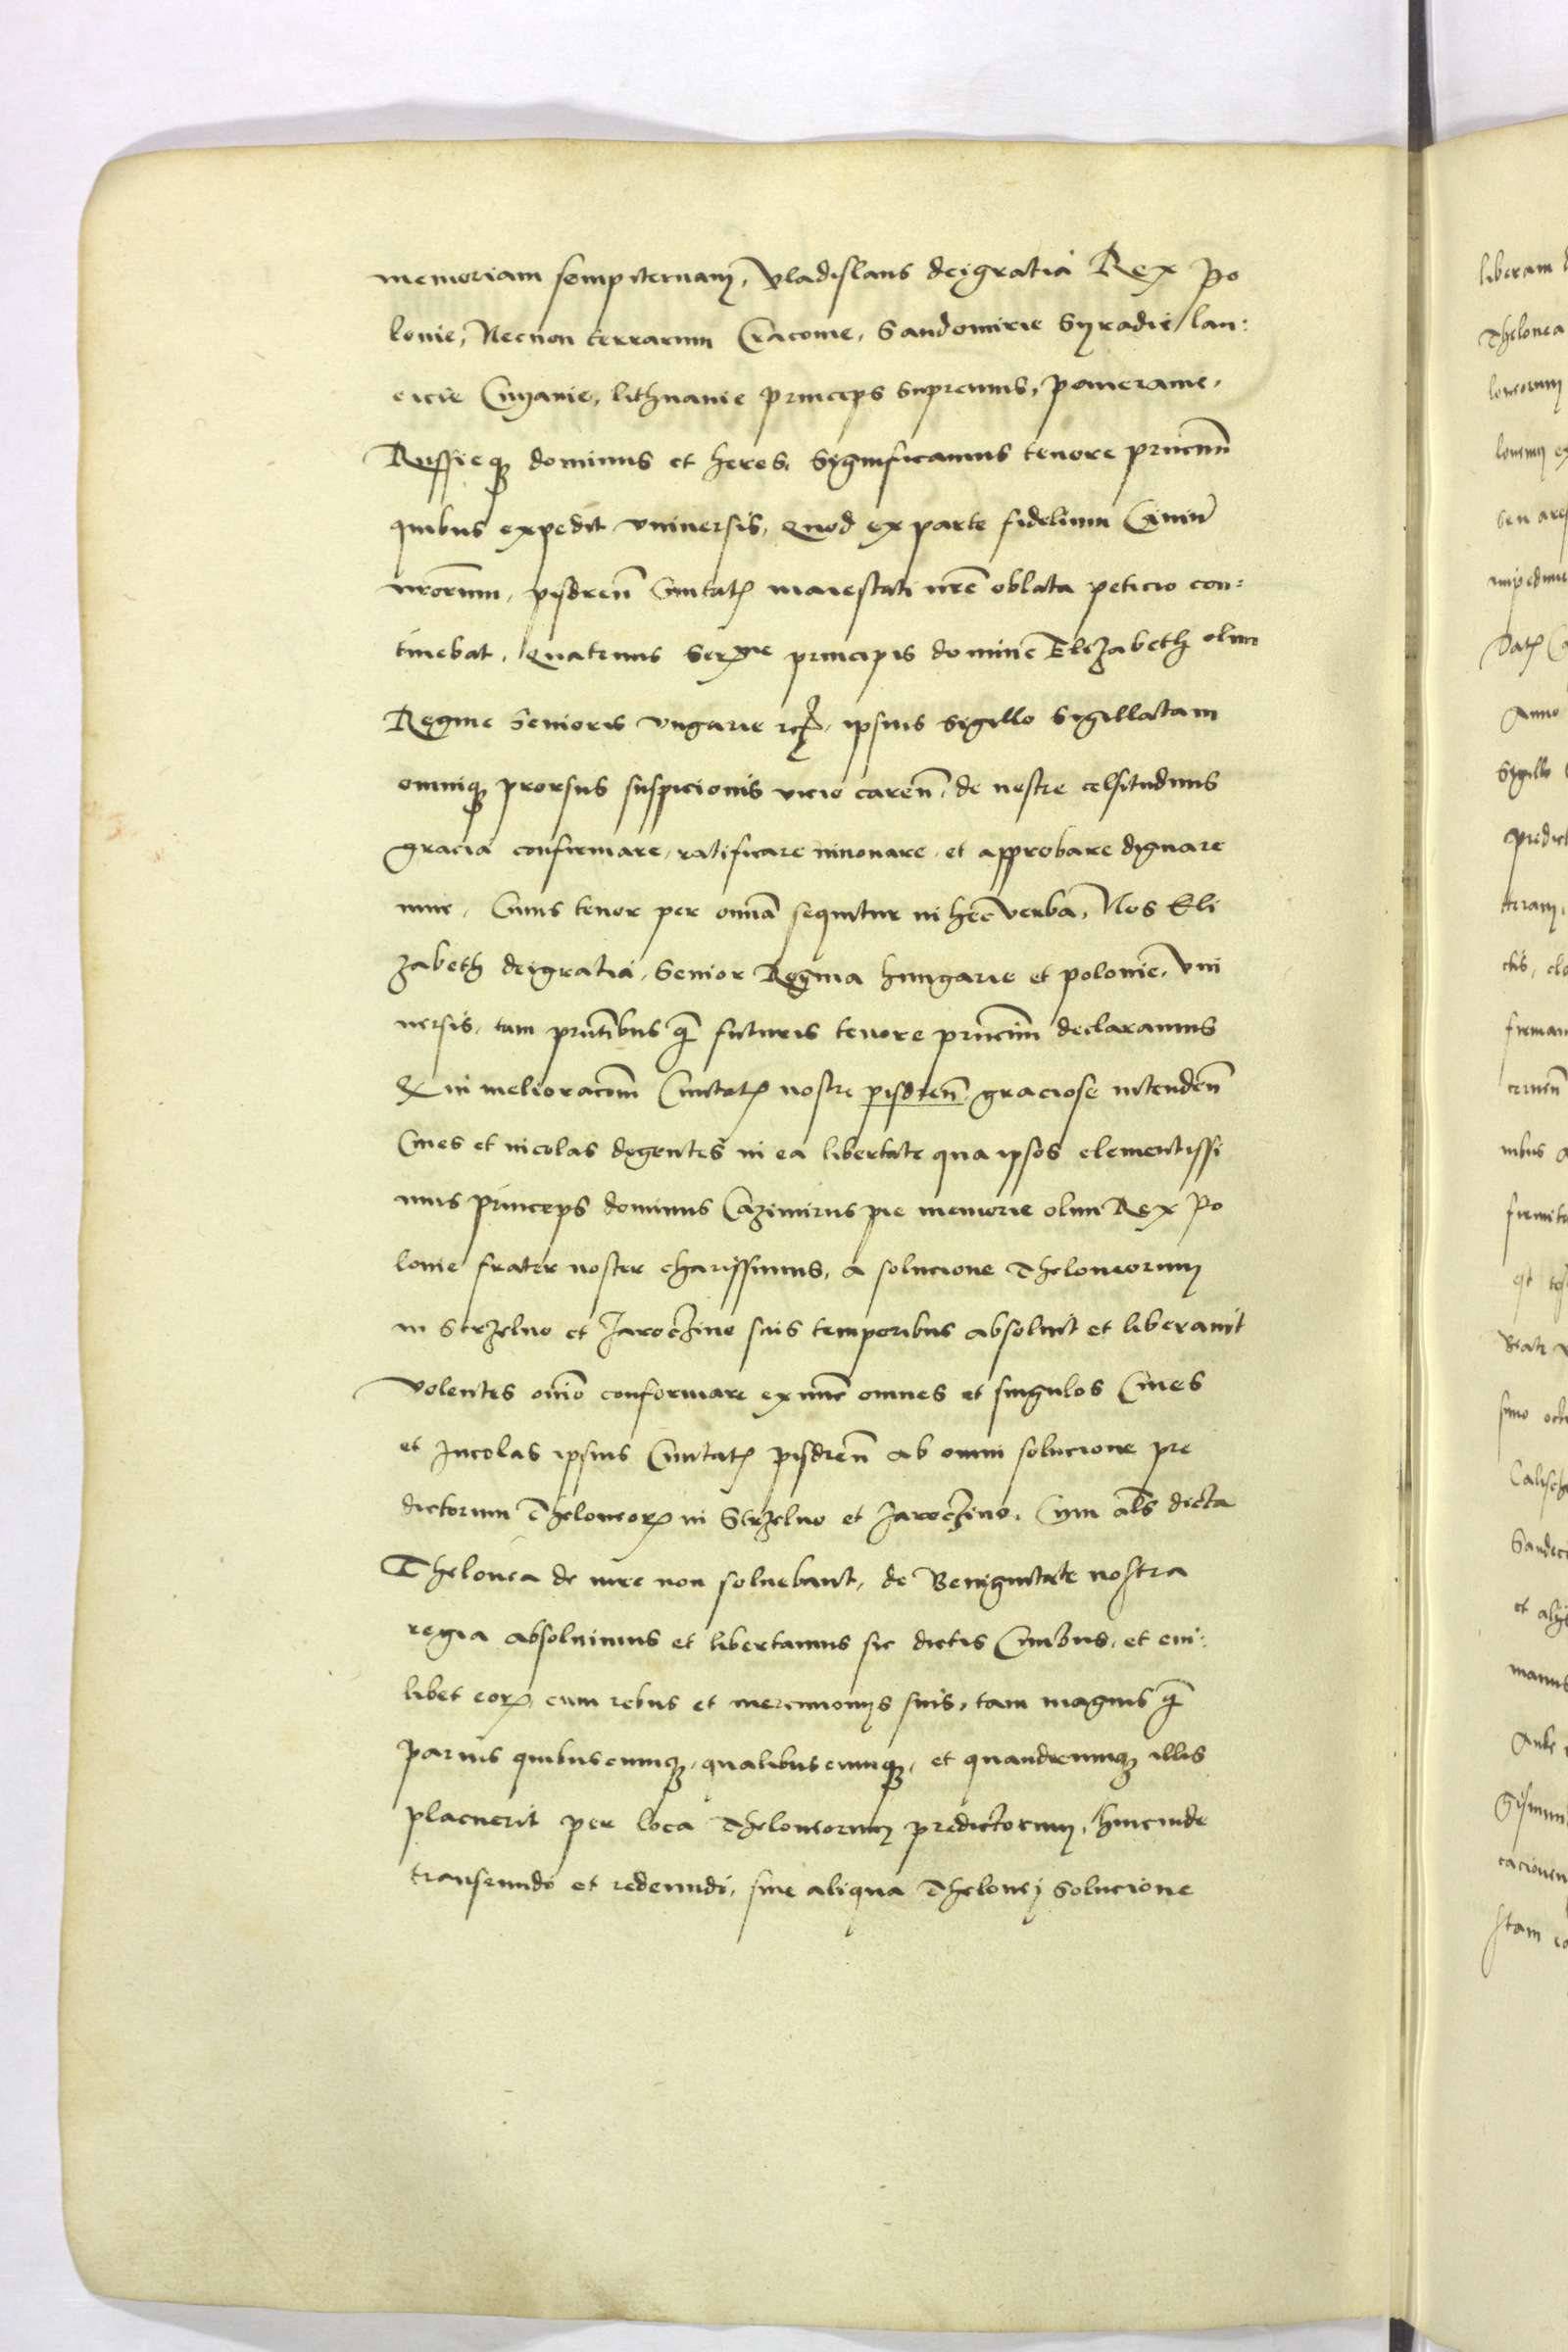 memoriam sempiternam, Vladislaus deigratia Rex Po
lonie, Necnon terrarum Cracouie, Sandomirie Syradie lan:
cicie Cuyauie, lithuanie princeps supremus, pomeranie,
Russieq₃ dominus et heres, Significamus tenore pñcium̄
quibus expedit vniuersis, Quod ex parte fidelium Ciuiū
nrōrum, pisdreñ Ciuitatꝭ maiestati nrē oblata peticio con:
tinebat, Quatenus Serme principis domine Elizabeth olim
Regine Senioris vngarie ꝛc̃, ipsius sigillo sigillatam
omniq₃ prorsus suspicionis vicio careñ, de nostre celsitudinis
gracia confirmare, ratificare innouare et approbare dignare
mur, Cuius tenor per omnia sequitur in hec verba, Nos Eli
zabeth deigratia, Senior Regina hungarie et polonie, vni
uersis, tam pñtibus q̄ futuris tenore pñcium̄ declaramus
Q in melioracōm̄ Ciuitatꝭ nostre pisdreñ graciose intendeñ
Ciues et incolas degentes in ea libertate qua ipsos clementissi
mus princeps dominus Cazimirus pie memorie olim Rex Po
lonie frater noster charissimus, a solucione Theloneorum
in Strzelno et Jaroczino suis temporibus absoluit et liberauit
volentes om̄io conformare ex nūc omnes et singulos Ciues
et Incolas ipsius Ciuitatꝭ pisdreñ ab omni solucione pre
dictorum Theloneorꝝ in Strzelno et Jaroczino, Cum als dicta
Thelonea de iure non soluebant, de Benignitate nostra
regia absoluimus et libertamus sic dictis Ciuibus, et cui:
libet eorꝝ, cum rebus et mercimonijs suis, tam magnis q̄
paruis quibuscumq₃, qualibuscumq₃, et quandocumq₃ illis
placuerit per loca Theloneorum predictorum, hincinde
transeundo et redeundi, sine aliqua Thelonej Solucione
liberam
Thelonea
loneorum
Datꝭ
Anno
Sigillo
predict
firmam
Calisch
Sandec
Ante